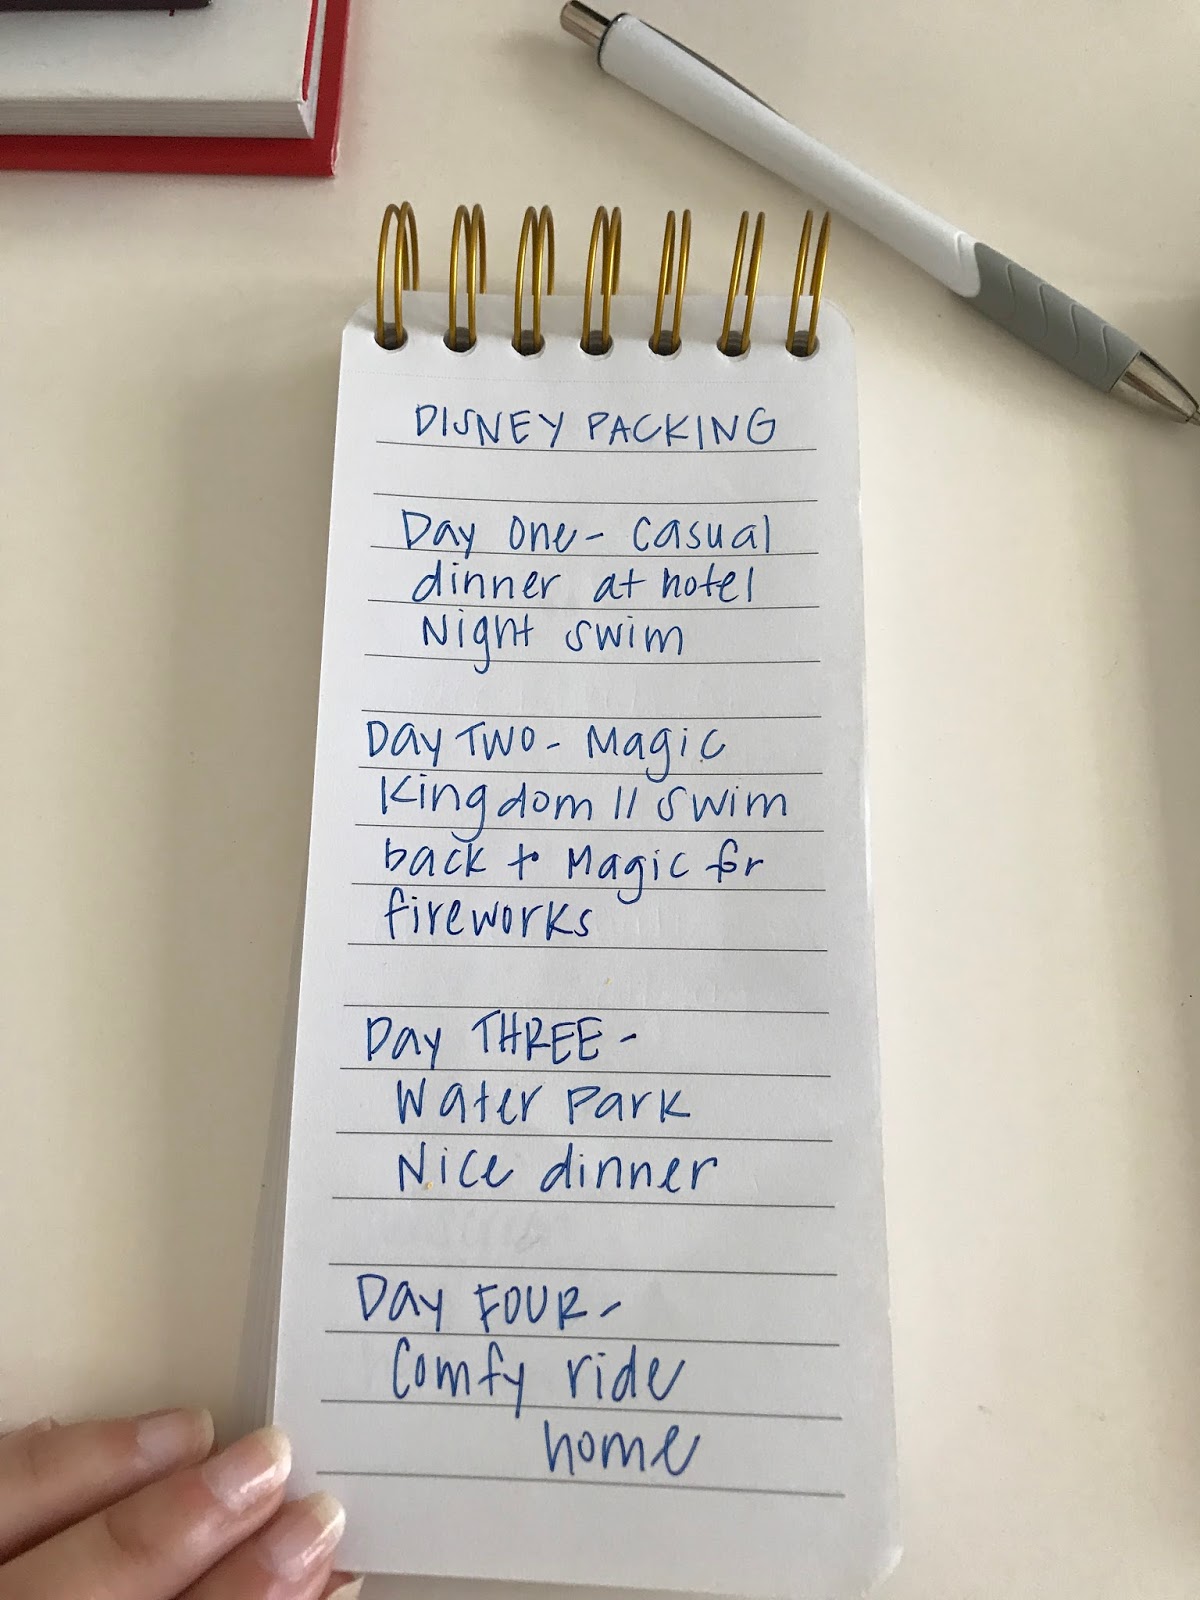 DISNEY PACKING
Day One - Casual
dinner at hotel
Night swim
Day TWO - Magic
Kingdom // swim
back to Magic for
fireworks
Day THREE -
Water Park
Nice dinner
Day FOUR -
Comfy ride
home